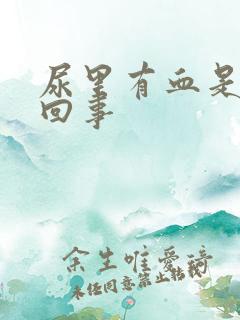 尿里有血是
回事
余生唯爱琦
未经同意禁止转载